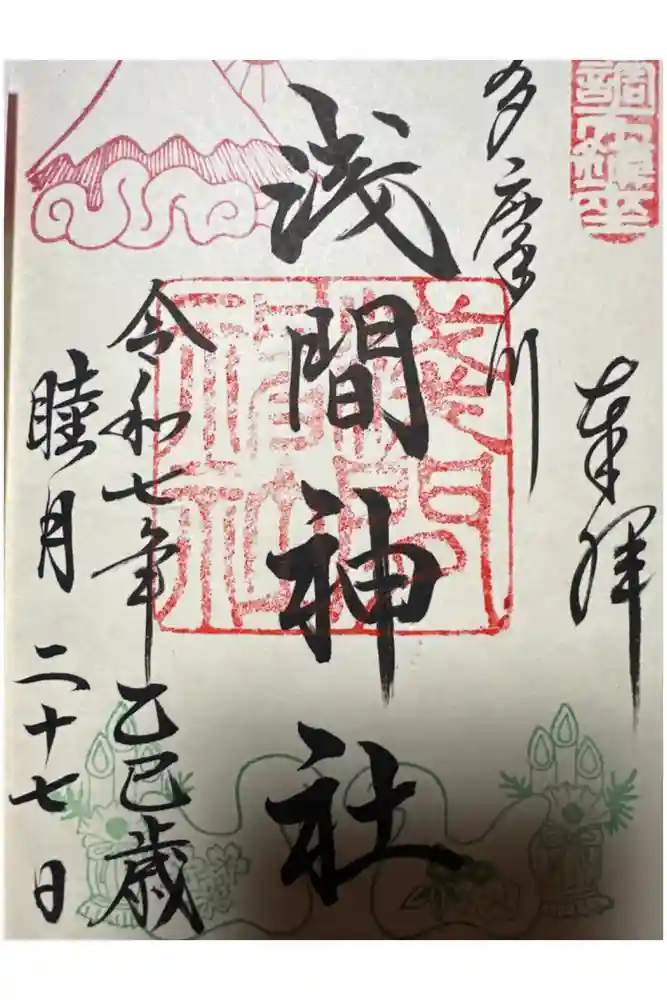 調布鎮座
奉拝
多摩川
浅間神社
令和七年 乙巳歳
睦月 二十七日